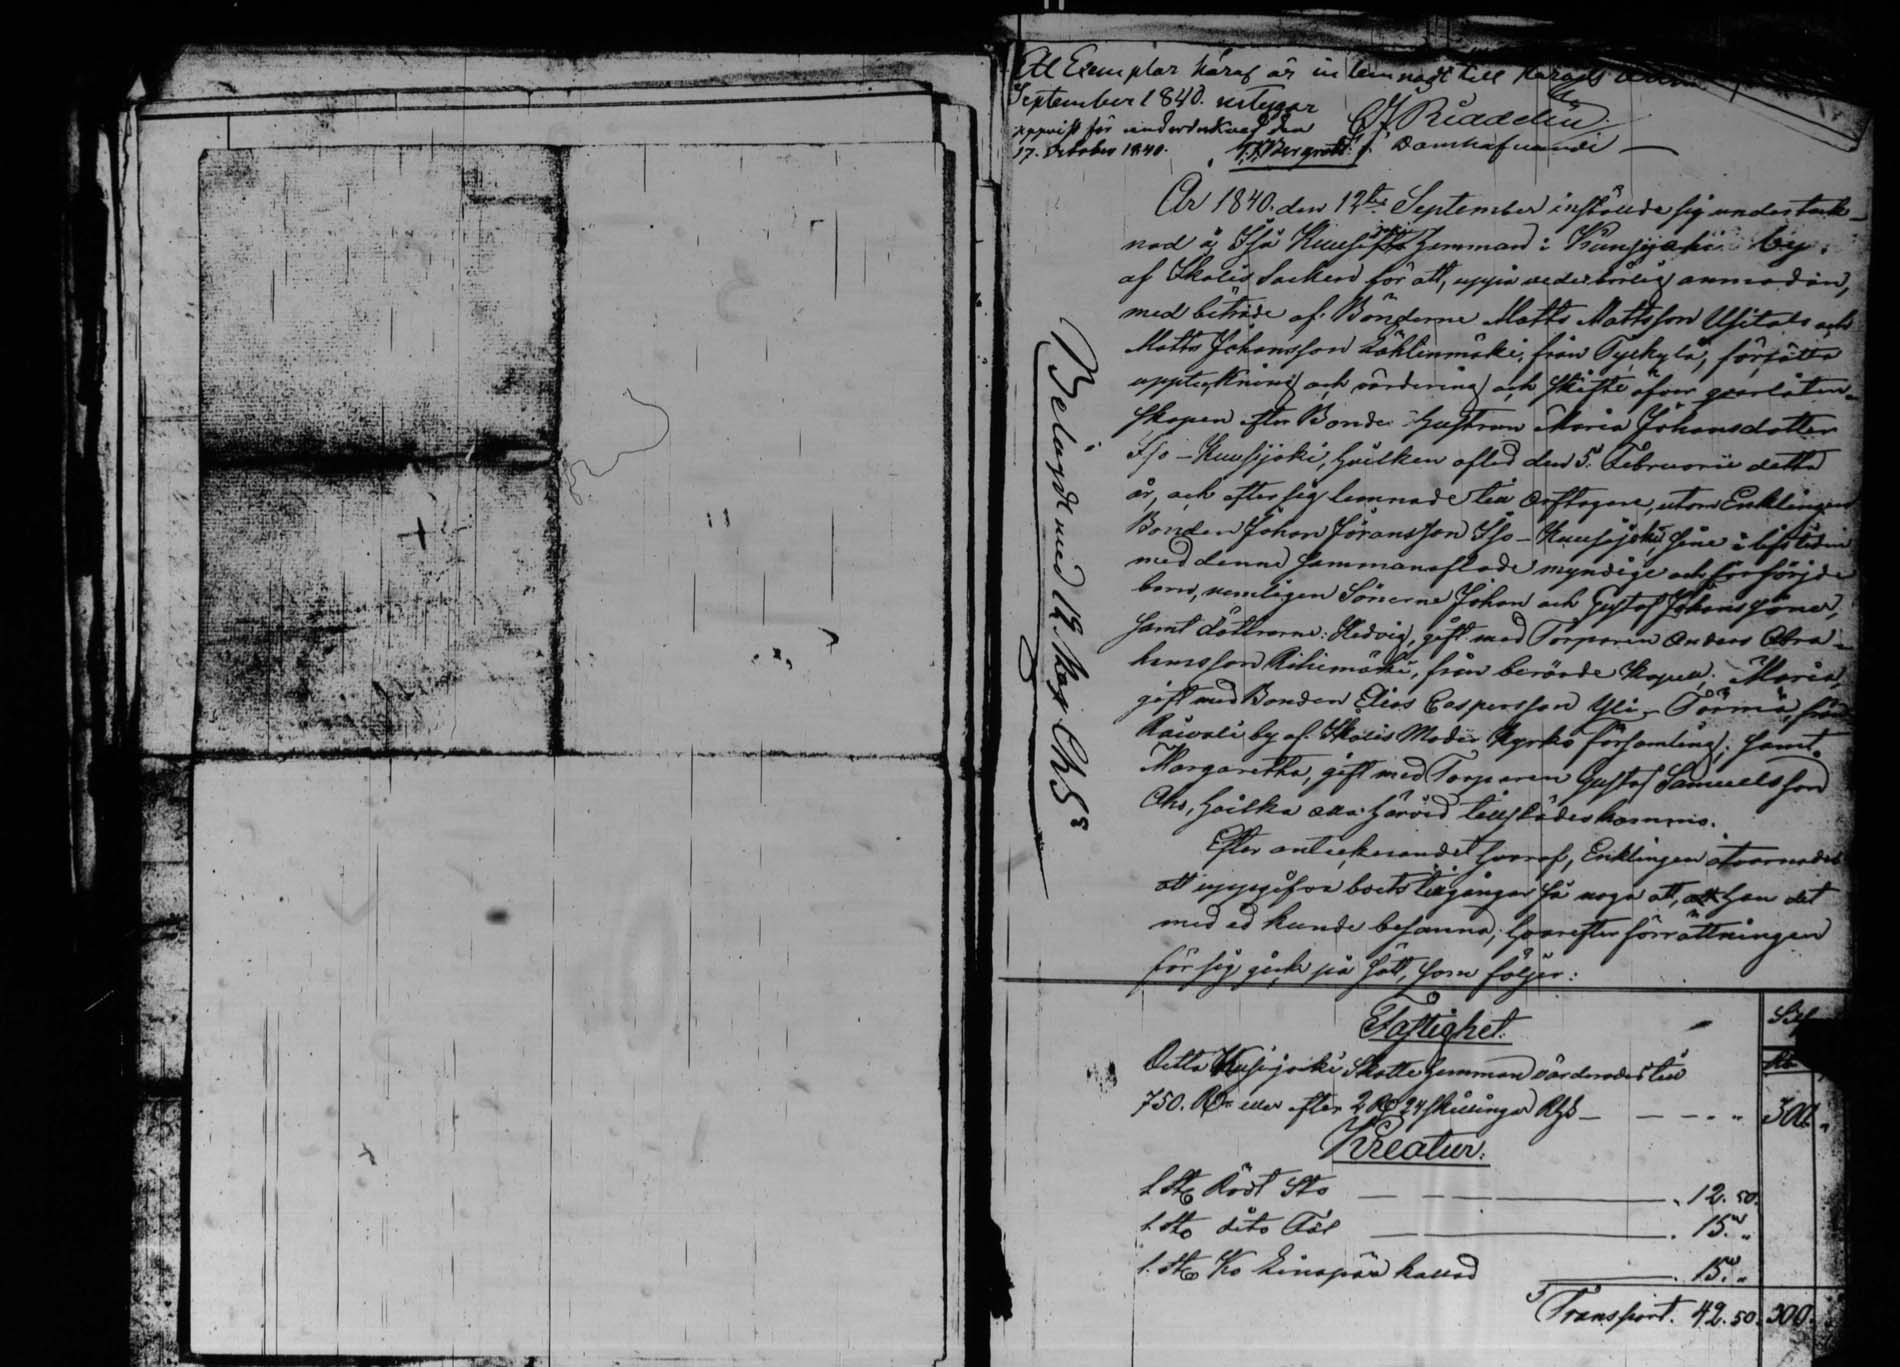 Ett Exemplar häraf är inlemnadt till Härads
September 1840. intygar
uppvist för undersökas den C J Riddelin
17. October 1840. Domhafvande
År 1840. den 12te September inställde sig underteck-
nad å Iso Kuusijoki Hemman i Kuusjoki by
af Ikalis Socken för att, uppå vederbörlig anmodan,
med biträde af Bönderne Matts Mattsson Usitalo och
Matts Johansson från Tyykylä, författa
uppteckning och värdering och skifte öfver qvarlåten-
skapen efter Bonde Hustrun Maria Johansdotter
Iso-Kuusijoki, hvilken afled den 5. Februarii detta
år, och efter sig lemnade till arftagare, utom Enklingen
Bonden Johan Jöransson Iso-Kuusijoki, sine i lifstiden
med denne sammanaflade myndige och försörjde
barn, nemligen Sönerne Johan och Gustaf Johanssöner,
samt döttrarne: Hedvig, gift med Torparen Anders Abra-
hamsson Riihimäki, från berörde Kapell, Maria,
gift med Bonden Elias Caspersson Yli-Törmä, från
by af Ikalis Moder Kyrko församling; samt
Margaretha, gift med Torparen Gustaf Samuelsson
Aho, hvilka alla härvid tillstädeskommo.
Efter antecknandet hvaraf, Enklingen åtvarnades
att uppgifva boets tillgångar så noga att, han det
med ed kunde besanna; hvarefter förrättningen
för sig gick på sätt, som följer:
Belagdt med 12 Kop. Ch. S.
Fastighet.
Detta Kusijoki Skatte Hemman värderades till
750. Rd eller efter 2 Rd 24 skillingar Rgs — 300. "
Kreatur.
1. St. Rödt Sto — 12. 50.
1. St. dito Föl — 15. "
1. St. Ko kallad — 15. "
Transport. 42. 50. 300.